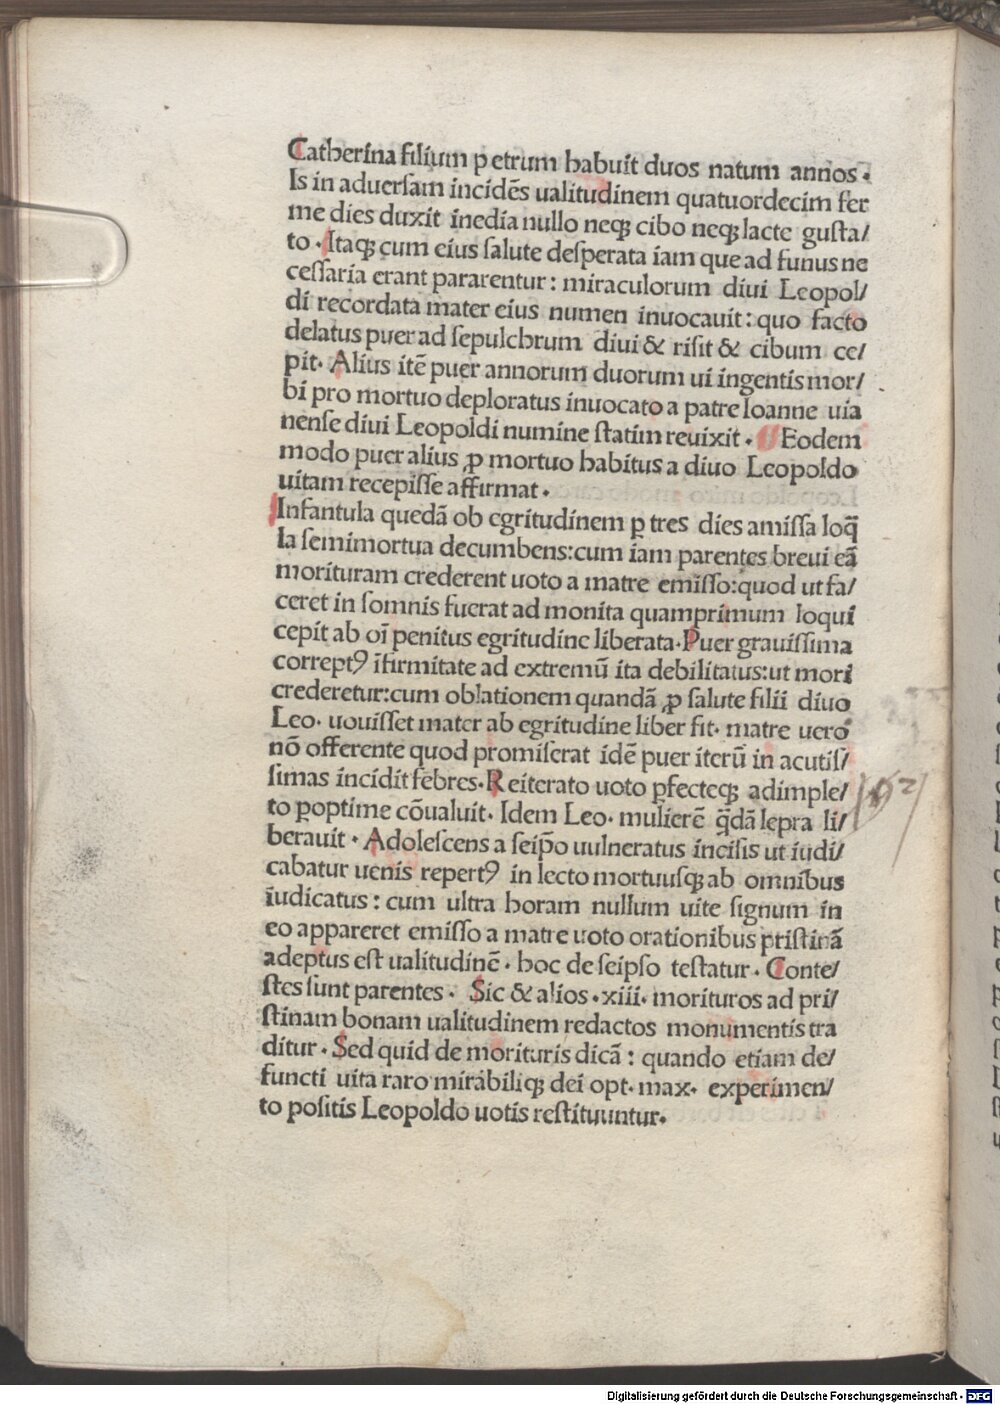 Catherina filium petrum habuit duos natum annos.
Is in aduersam incidēs ualitudinem quatuordecim fer
me dies duxit inedia nullo neqꝫ cibo neqꝫ lacte gusta/
to. Itaqꝫ cum eius salute desperata iam que ad funus ne
cessaria erant pararentur: miraculorum diui Leopol/
di recordata mater eius numen inuocauit: quo facto
delatus puer ad sepulchrum diui & risit & cibum ce/
pit. Alius itē puer annorum duorum ui ingentis mor/
bi pro mortuo deploratus inuocato a patre Ioanne uia
nense diui Leopoldi numine statim reuixit. Eodem
modo puer alius ꝓ mortuo habitus a diuo Leopoldo
uitam recepisse affirmat.
Infantula quedā ob egritudinem ꝑ tres dies amissa loq̄
la semimortua decumbens:cum iam parentes breui eā
morituram crederent uoto a matre emisso:quod ut fa/
ceret in somnis fuerat ad monita quamprimum loqui
cepit ab oī penitus egritudine liberata. Puer grauissima
correptꝰ īfirmitate ad extremū ita debilitatus:ut mori
crederetur:cum oblationem quandā ꝓ salute filii diuo
Leo. uouisset mater ab egritudine liber fit. matre uero
nō offerente quod promiserat idē puer iterū in acutis/
simas incidit febres. Reiterato uoto ꝑfecteqꝫ adimple/
to ꝑoptime cōualuit. Idem Leo. mulierē q̄dā lepra li/
berauit. Adolescens a seip̄o uulneratus incisis ut iudi/
cabatur uenis repertꝰ in lecto mortuusqꝫ ab omnibus
iudicatus: cum ultra horam nullum uite signum in
eo appareret emisso a matre uoto orationibus pristinā
adeptus est ualitudinē. hoc de seipso testatur. Conte/
stes sunt parentes. Sic & alios .xiii. morituros ad pri/
stinam bonam ualitudinem redactos monumentis tra
ditur. Sed quid de morituris dicā: quando etiam de/
functi uita raro mirabiliqꝫ dei opt. max. experimen/
to positis Leopoldo uotis restituuntur.
Digitalisierung gefördert durch die Deutsche Forschungsgemeinschaft - DFG